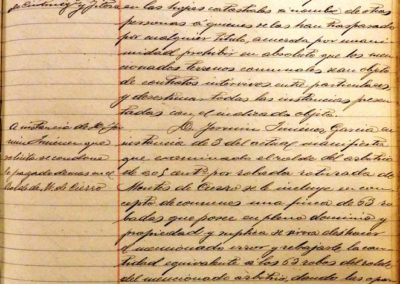 en las hojas catastrales a nombre de otras
personas a quienes se las han traspasado
por cualquier titulo, acuerda por unani-
midad prohibir en absoluto que los men-
cionados terrenos comunales sean objeto
de contratos intervivos entre particulares
y desestimar todas las instancias presen-
tadas con el indicado objeto.
A instancia de Dn. Jer-
min Jimenez que
solicita se condone
lo pagado demas en el
rolde de M. de Cierzo
D. Fermin Jimenez Garcia en
instancia de 3 del actual manifiesta
que examinado el rolde del arbitrio
de 0,05 cents por robada roturada de
Montes de Cierzo se le incluye en con-
cepto de comunes una finca de 53 ro-
badas que posee en pleno dominio y
propiedad y suplica se sirva deshacer
el mencionado error y rebajarle la can-
tidad equivalente a los 53 robos del rolde
del mencionado arbitrio, donde